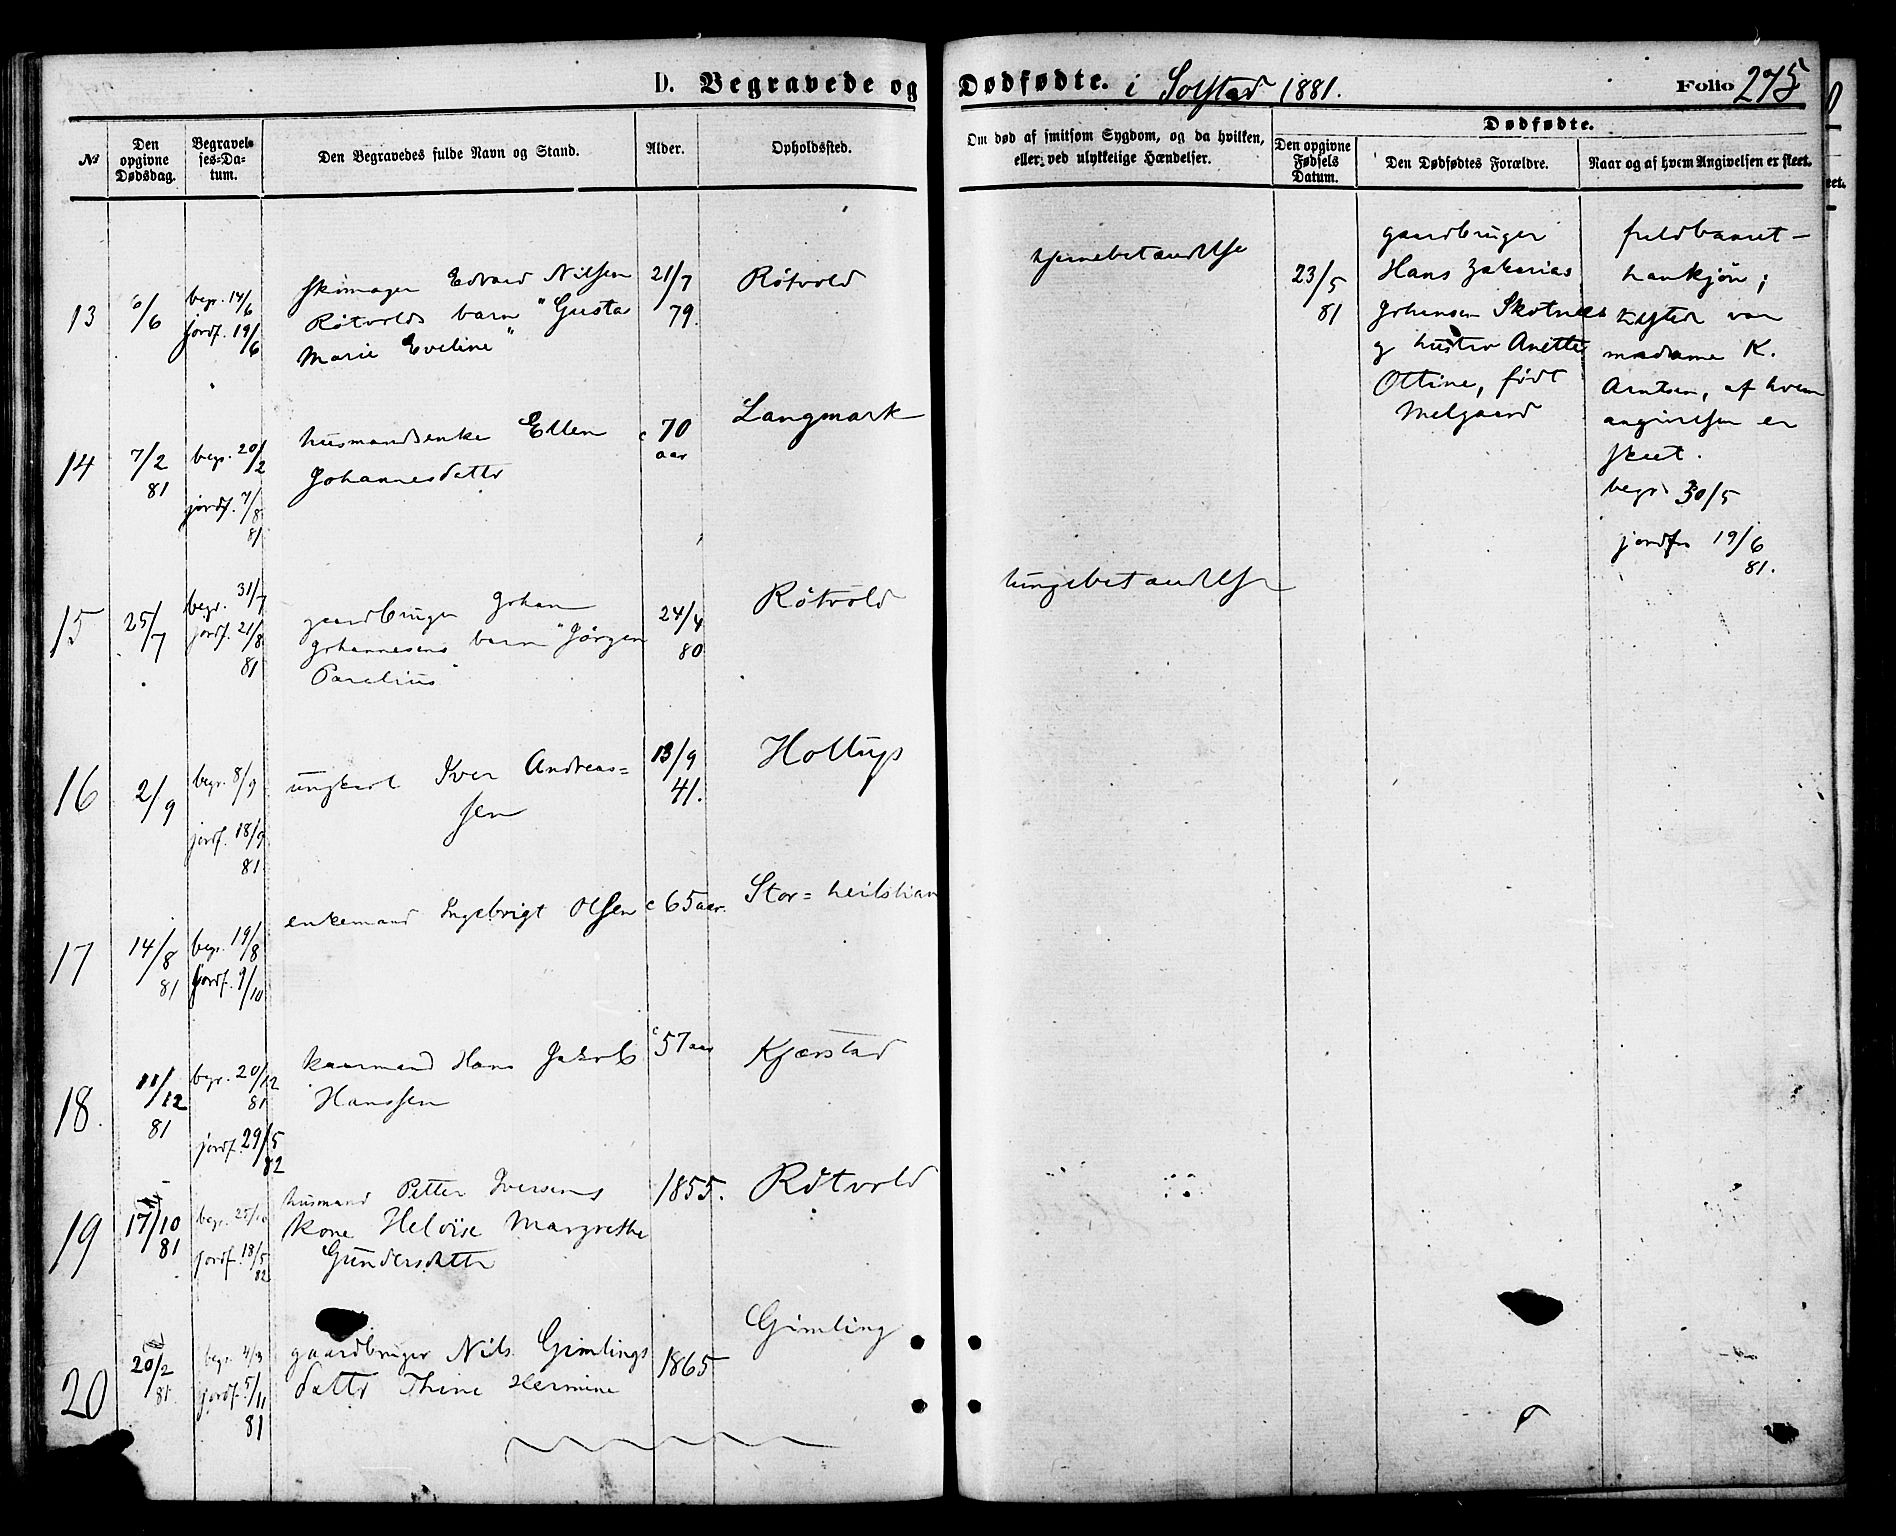 D. Begravede og Dødfødte. i Solstad 1881. Folio 275
№
Den opgivne Dødsdag.
Begravelses-Datum.
Den Begravedes fulde Navn og Stand.
Alder.
Opholdssted.
Om død af smitsom Sygdom, og da hvilken, eller: ved ulykkelige Hændelser.
Dødfødte.
Den opgivne Fødsels Datum.
Den Dødfødtes Forældre.
Naar og af hvem Angivelsen er skeet.
13
6/6
begr. 14/6
jordf. 19/6
skomager Edvard Nilsen
Røtvolds barn "Gusta
Marie Eveline"
21/7
79.
Røtvold
hjernebetændelse
23/5
81
gaardbruger
Hans Zakarias
Johansen Skotnes
g hustru Anette
Ottine, født
Melgaard
fuldbaaret
hankjøn;
var
madame K.
Arntsen, af hvem
angivelsen er
skeet.
begr 30/5
jordf. 19/6
81.
14
7/2
81
begr. 20/2
jordf. 7/8
81
husmandsenke Ellen
Johannesdattr
c 70
aar
Langmark
15
25/7
begr. 31/7
jordf. 21/8
81
gaardbruger Johan
Johannesens barn "Jørgen
Parelius"
24/4
80
Røtvold
lungebetændelse
16
2/9
begr. 8/9
jordf. 18/9
81
ungkarl Iver Andreas=
sen
13/9
41.
Holtup
17
14/8
81
begr. 19/8
jordf. 9/10
enkemand Ingebrigt Olsen
c 65 aar.
Stor=
18.
11/12
81
begr. 20/12
81
jordf. 29/5
82
kaarmand Hans Jakob
Hanssen
c 57 aar
Kjærstad
19
17/10
81
begr. 25/10
jordf. 18/5
82
husmand Petter Iversens
kone Heloise Margrethe
Gundersdattr
1855.
Røtvold
20
20/2
81
begr. 4/3
jordf. 5/11
81
gaardbruger Nils Gimlings
dattr Thine Hermine
1865
Gimling